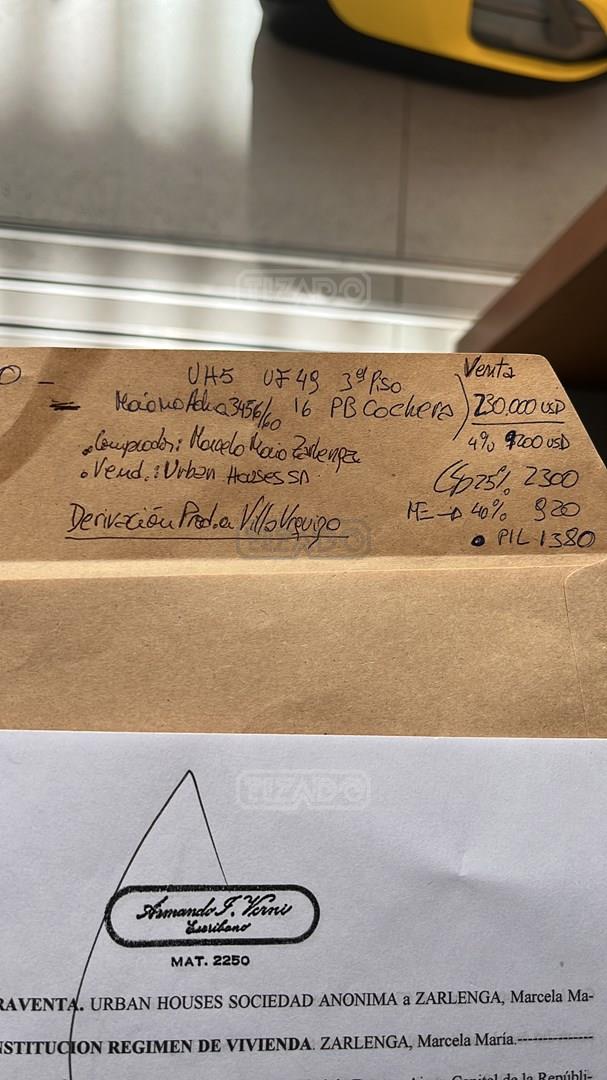 TIZADO
UH5 UF 49 3er Piso
Mariano Acha 3456/60 16 PB Cochera)
• Comprador: Marcelo Mario Zarlenga
• Vend.: Urban Houses SA
Derivación Prod. a Villa Urquiza
Venta
230,000 USD
4% 9200 USD
Cp 25% 2300
ME → 40% 920
• PIL 1380
TIZADO
TIZADO
Armando J. Verni
Escribano
MAT. 2250
RAVENTA. URBAN HOUSES SOCIEDAD ANONIMA a ZARLENGA, Marcela Ma-
NSTITUCION REGIMEN DE VIVIENDA. ZARLENGA, Marcela María.---------------
Capital de la Repúbli-